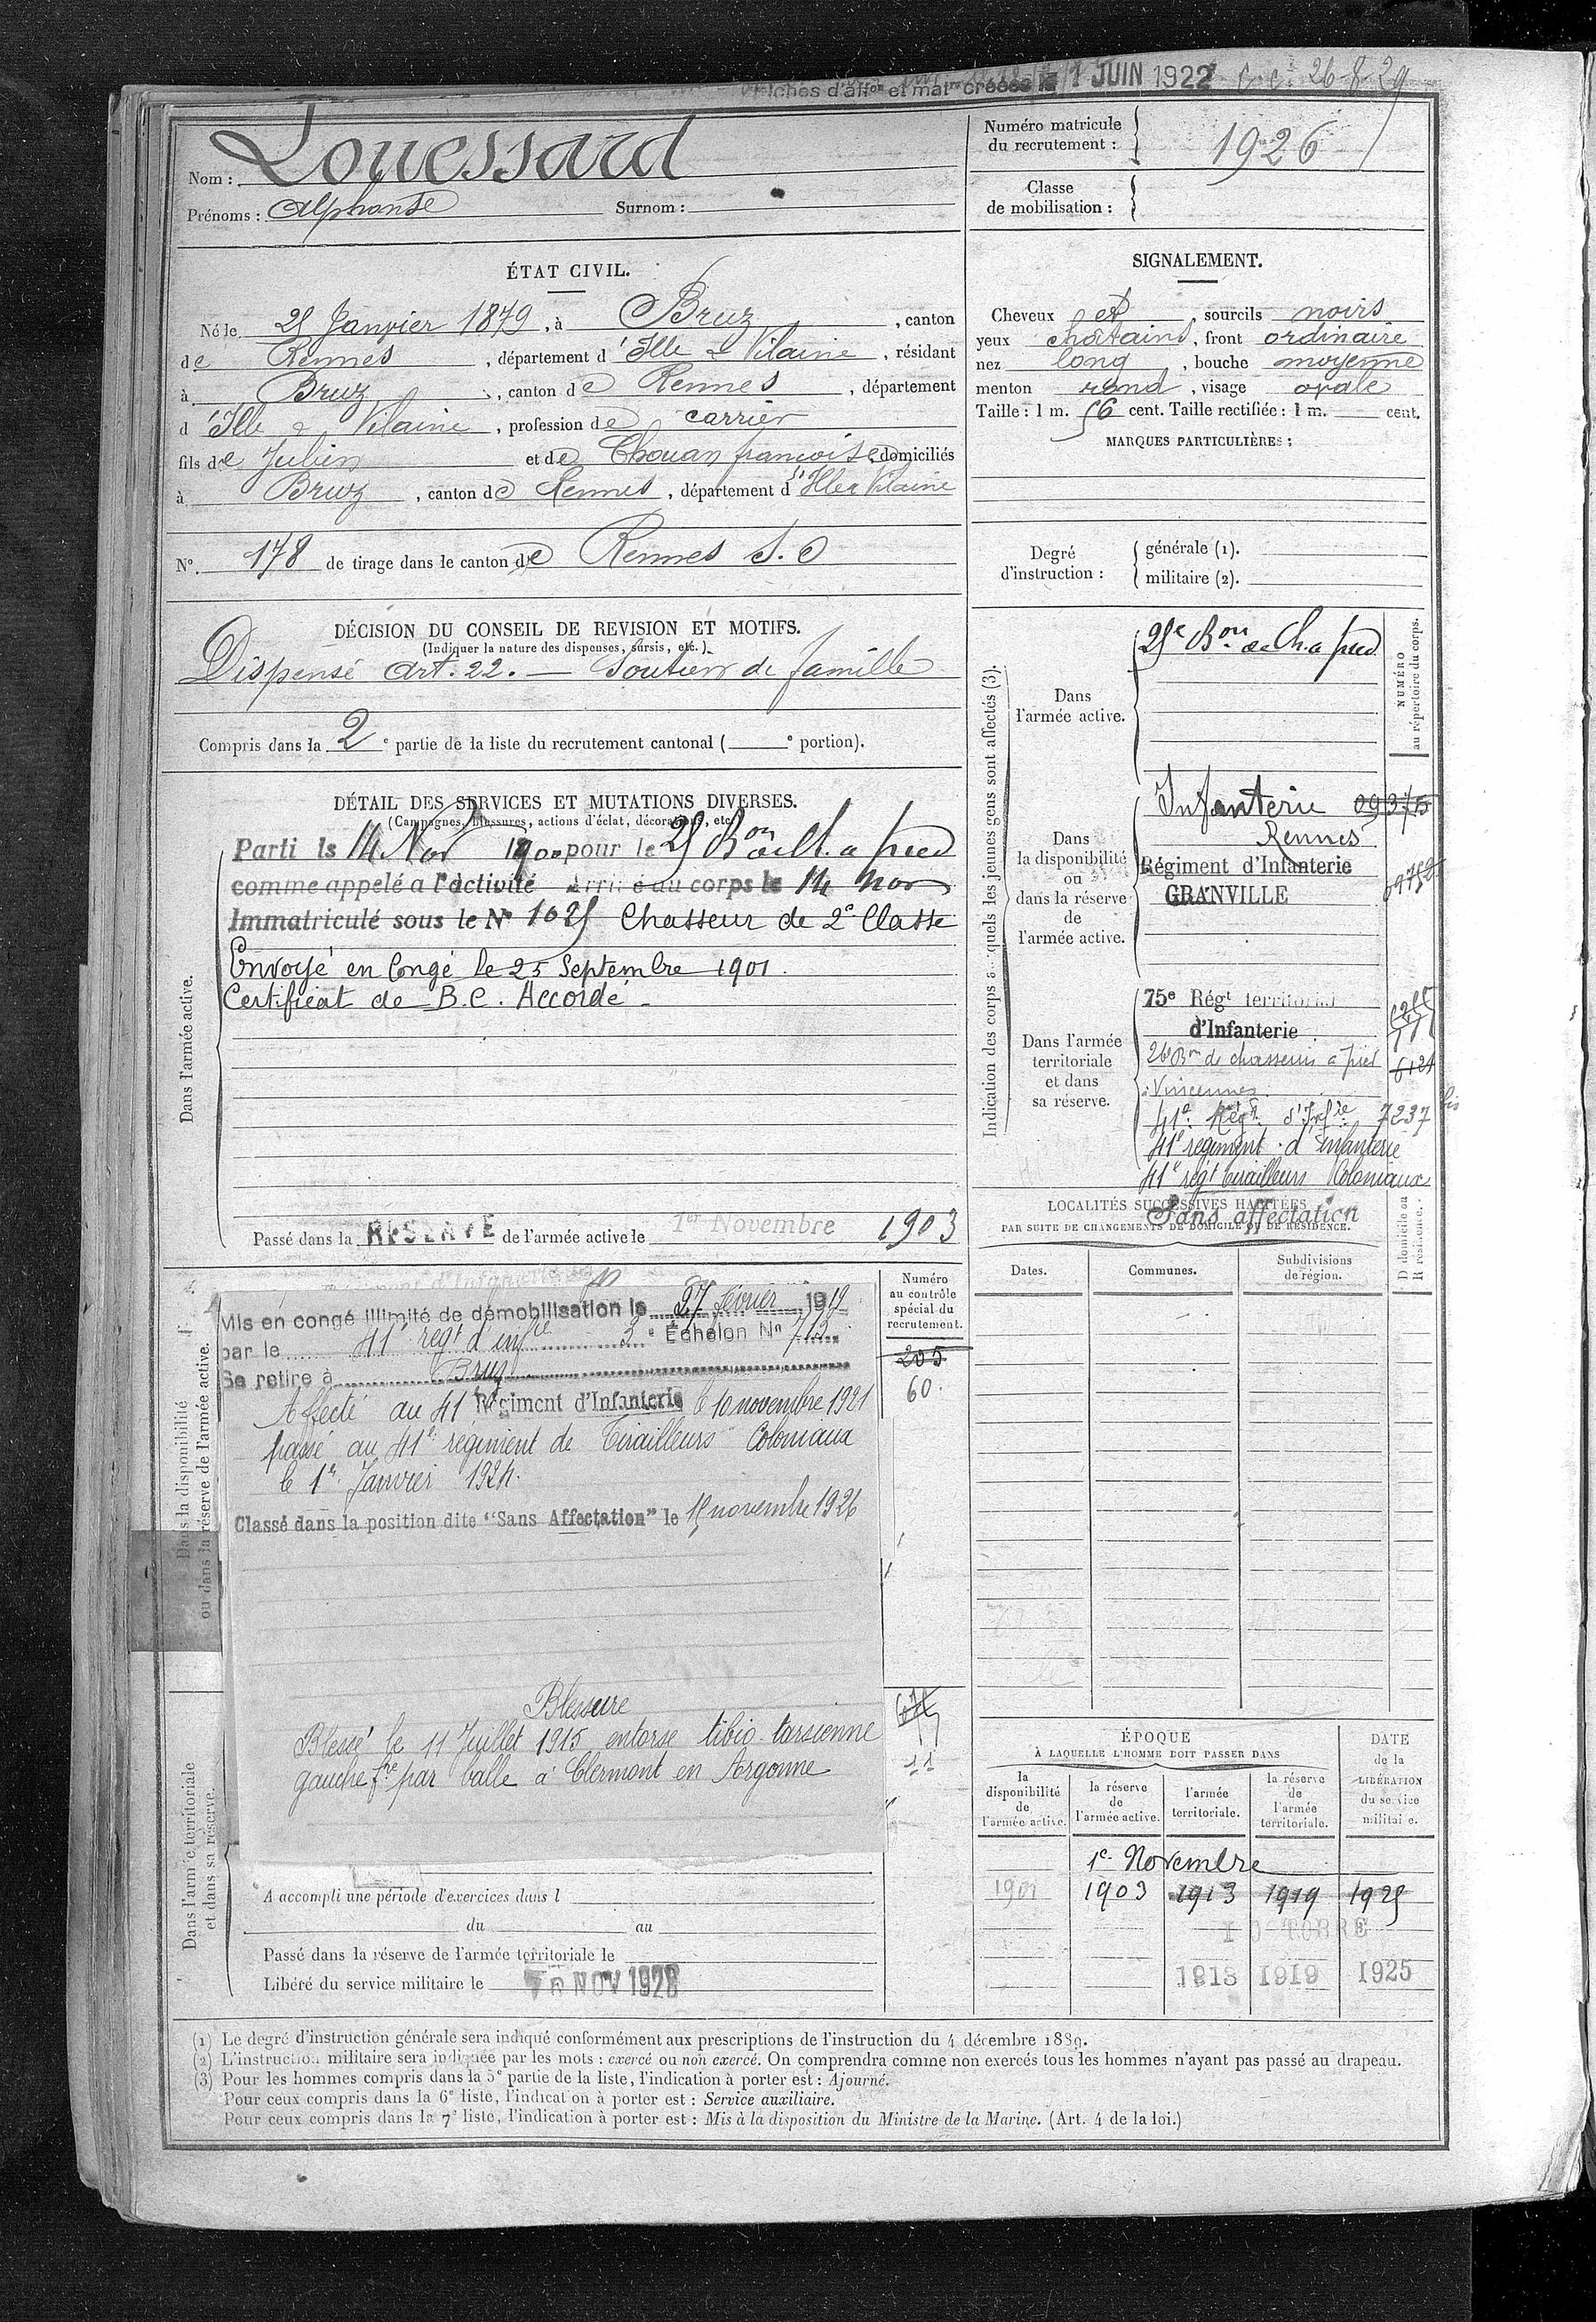 Fiches d'aff^on et mat^re créées le 1 JUIN 1922 26-8-29
Nom : Louessard
Prénoms : Alphonse Surnom :
Numéro matricule du recrutement : 1926
Classe de mobilisation :
ÉTAT CIVIL.
Né le 25 Janvier 1879, à Bruz, canton
de Rennes, département d'Ille & Vilaine, résidant
à Bruz, canton de Rennes, département
d'Ille & Vilaine, profession de carrier
fils de Julien et de Chouan françoise, domiciliés
à Bruz, canton de Rennes, département d'Ille & Vilaine
N° 178 de tirage dans le canton de Rennes S.O
SIGNALEMENT.
Cheveux et, sourcils noirs
yeux chatains, front ordinaire
nez long, bouche moyenne
menton rond, visage ovale
Taille : 1 m. 56 cent. Taille rectifiée : 1 m. cent.
MARQUES PARTICULIÈRES :
Degré d'instruction : générale (1).
militaire (2).
DÉCISION DU CONSEIL DE REVISION ET MOTIFS.
(Indiquer la nature des dispenses, sursis, etc.)
Dispensé Art. 22. — Soutien de famille
Compris dans la 2e partie de la liste du recrutement cantonal ( e portion).
DÉTAIL DES SERVICES ET MUTATIONS DIVERSES.
(Campagnes, blessures, actions d'éclat, décorations, etc.)
Dans l'armée active.
Parti le 14 Nov 1900 pour le 25 Bon de Ch. a pied
comme appelé a l'activité Arrivé au corps le 14 nov
Immatriculé sous le N° 1025 Chasseur de 2e Classe
Envoyé en Congé le 25 Septembre 1901.
Certificat de B.C. Accordé -
Passé dans la RÉSERVE de l'armée active le 1er Novembre 1903
Indication des corps auxquels les jeunes gens sont affectés (3).
NUMÉRO au répertoire du corps.
Dans l'armée active.
25e Bon de Ch. a pied
Dans la disponibilité ou dans la réserve de l'armée active.
Infanterie 09375
Rennes
Régiment d'Infanterie
GRANVILLE
Dans l'armée territoriale et dans sa réserve.
75e Régt territorial
d'Infanterie
26e Bon de chasseurs a pied
Vincennes
41e Régt d'Infie 7237 bis
41e regiment d'infanterie
41e régt tirailleurs Coloniaux
Sans affectation
LOCALITÉS SUCCESSIVES HABITÉES
PAR SUITE DE CHANGEMENTS DE DOMICILE OU DE RÉSIDENCE.
Dates. Communes. Subdivisions de région. D domicile ou R résidence.
Dans la disponibilité ou dans la réserve de l'armée active.
Numéro au contrôle spécial du recrutement.
205
60.
Mis en congé illimité de démobilisation le 27 février 1919
par le 41e regt d'infie 3e Échelon N° 713
Se retire à Bruz
Affecté au 41e Régiment d'Infanterie le 10 novembre 1921
passé au 41e régiment de Tirailleurs Coloniaux
le 1er Janvier 1924.
Classé dans la position dite "Sans Affectation" le 15 novembre 1926
Blessure
Blessé le 11 Juillet 1915 entorse tibio-tarsienne
gauche fre par balle à Clermont en Argonne
Dans l'armée territoriale et dans sa réserve.
A accompli une période d'exercices dans l
du au
Passé dans la réserve de l'armée territoriale le
Libéré du service militaire le NOV 1928
ÉPOQUE
À LAQUELLE L'HOMME DOIT PASSER DANS
DATE de la LIBÉRATION du service militaire.
la disponibilité de l'armée active. la réserve de l'armée active. l'armée territoriale. la réserve de l'armée territoriale.
1er Novembre
1901 1903 1913 1919 1925
1 OCTOBRE
1913 1919 1925
(1) Le degré d'instruction générale sera indiqué conformément aux prescriptions de l'instruction du 4 décembre 1889.
(2) L'instruction militaire sera indiquée par les mots : exercé ou non exercé. On comprendra comme non exercés tous les hommes n'ayant pas passé au drapeau.
(3) Pour les hommes compris dans la 5e partie de la liste, l'indication à porter est : Ajourné.
Pour ceux compris dans la 6e liste, l'indication à porter est : Service auxiliaire.
Pour ceux compris dans la 7e liste, l'indication à porter est : Mis à la disposition du Ministre de la Marine. (Art. 4 de la loi.)